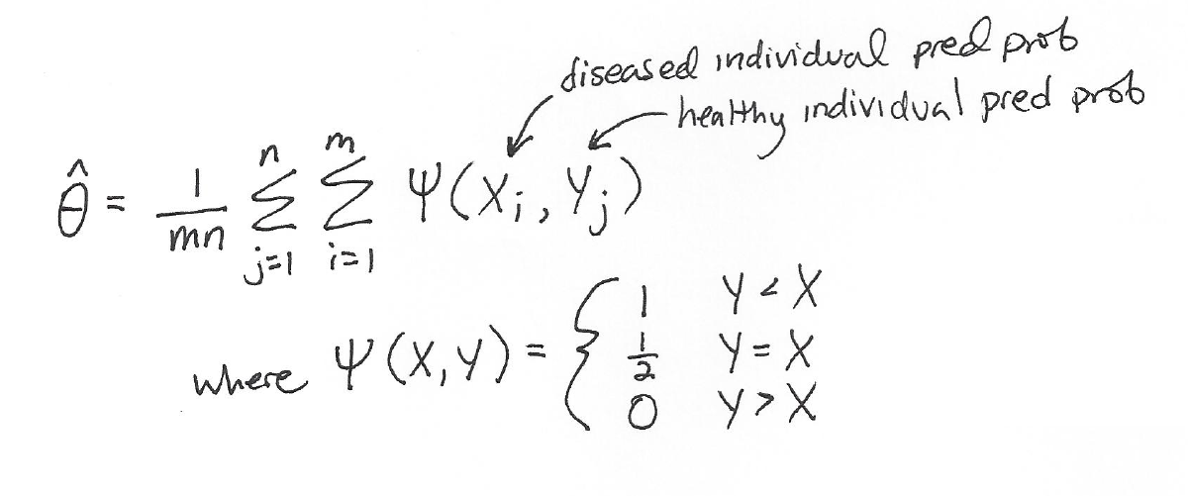 diseased individual pred prob
healthy individual pred prob
θ̂ = 1/mn Σ_{j=1}^{n} Σ_{i=1}^{m} Ψ(X_i, Y_j)
where Ψ(X,Y) = { 1 Y < X
1/2 Y = X
0 Y > X